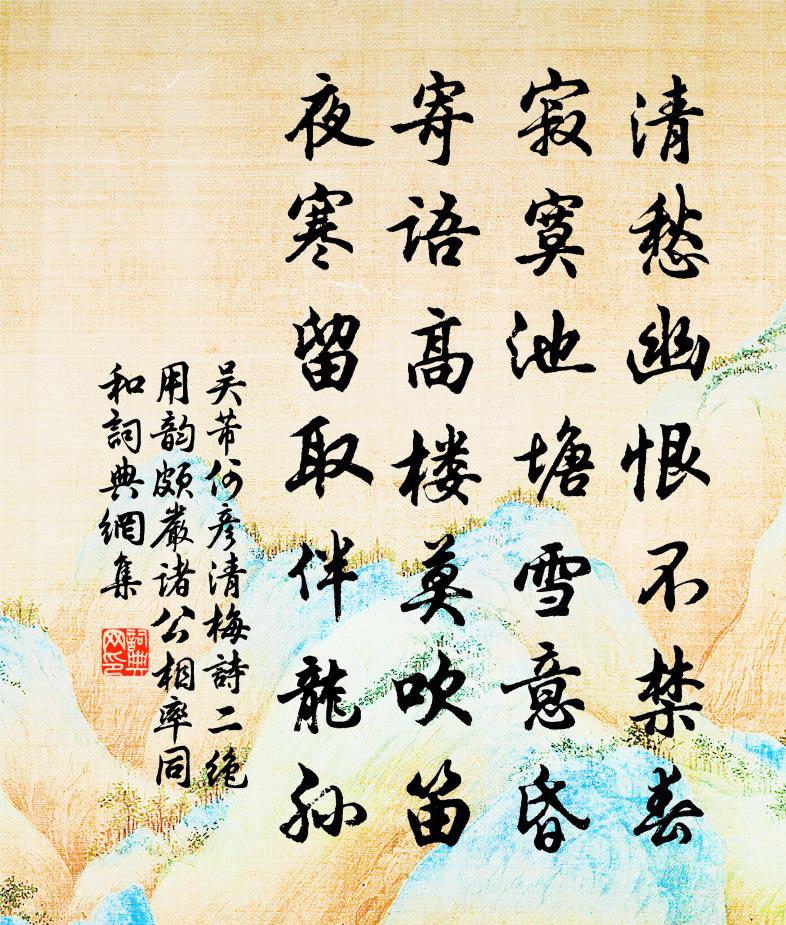 清愁幽恨不禁春
寂寞池塘雪意昏
寄语高楼莫吹笛
夜寒留取伴龍孙
吴芾何彦清梅詩二绝
用韵颇嚴诸公相率同
和詞典網集
詞典
网印